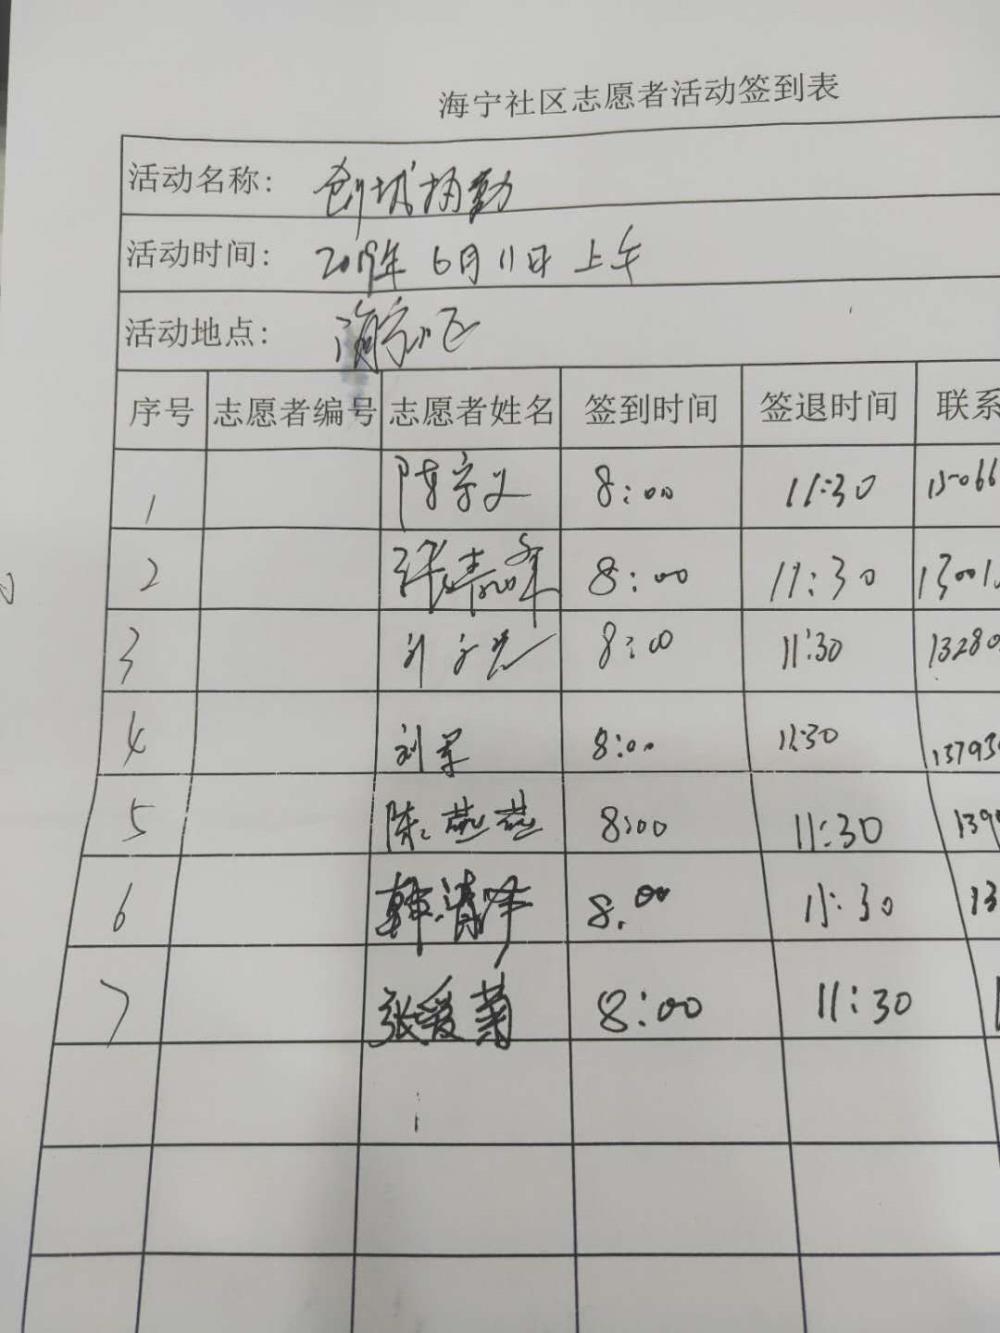 海宁社区志愿者活动签到表
活动名称： 创城执勤
活动时间： 2019年 6月 11日 上午
活动地点： 海宁小区
序号 志愿者编号 志愿者姓名 签到时间 签退时间 联系
1 8:00 11:30 15066
2 8:00 11:30 13001
3 刘 8:00 11:30 13280
4 刘军 8:00 11:30 13793
5 陈燕燕 8:00 11:30 139
6 韩清泽 8:00 11:30 13
7 张爱菊 8:00 11:30